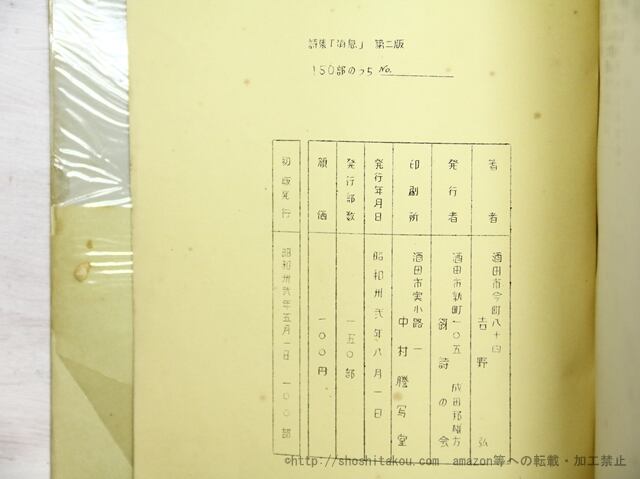 詩集「消息」 第二版
150部のうち No.
著者 酒田市今町八十四 吉野弘
発行者 酒田市新町一〇五 成田邦雄方 劉詩の会
印刷所 酒田市実小路一 中村謄写堂
発行年月日 昭和卅弐年八月一日
発行部数 一五〇部
頒価 一〇〇円
初版発行 昭和卅弐年五月一日 一〇〇部
©http://shoshitakou.com amazon等への転載・加工禁止